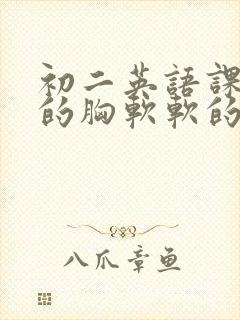 初二英語課
的胸軟軟的
八爪章鱼